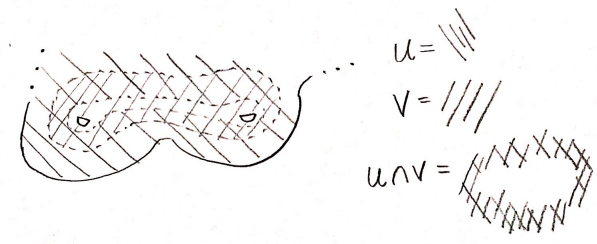 ...
u =
V =
u∩v =